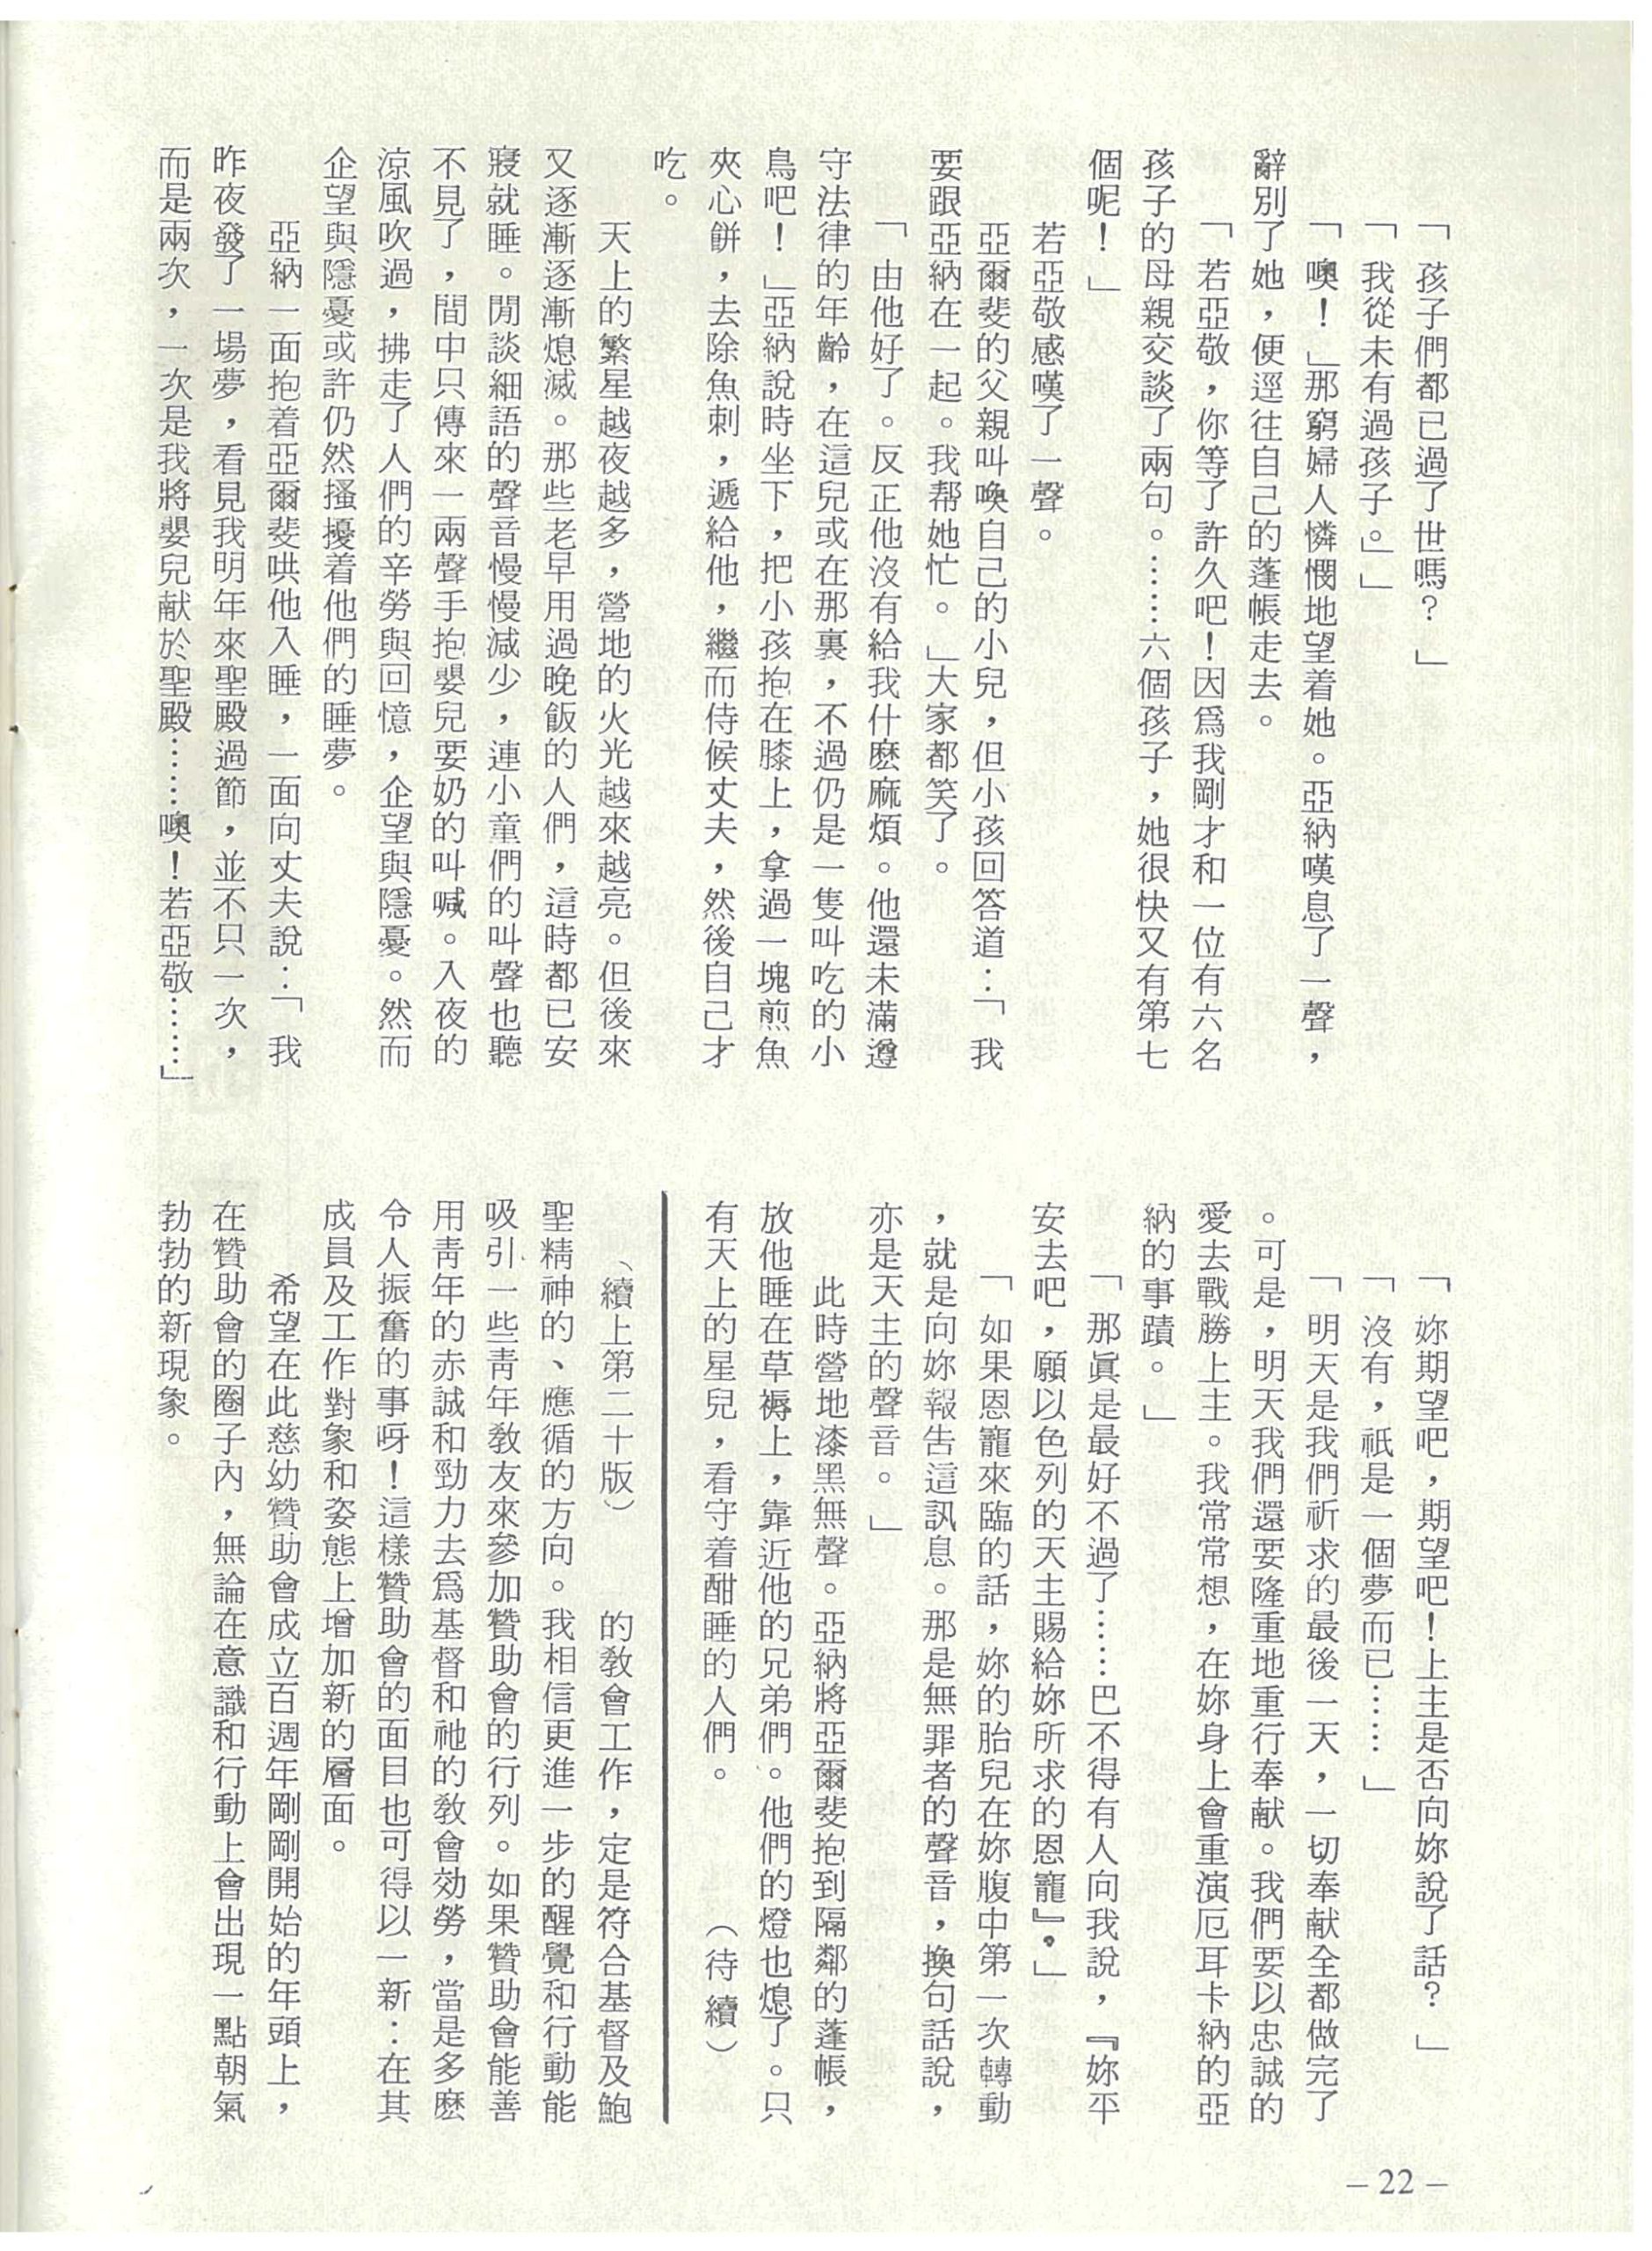 「孩子們都已過了世嗎?」
「我從未有過孩子。」」
「噢!」那窮婦人憐憫地望着她。亞納嘆息了一聲,
辭別了她,便逕往自己的蓬帳走去。
「若亞敬,你等了許久吧!因爲我剛才和一位有六名
孩子的母親交談了兩句。……六個孩子,她很快又有第七
個呢!」
若亞敬感嘆了一聲。
亞爾斐的父親叫喚自己的小兒,但小孩回答道:「我
要跟亞納在一起。我帮她忙。」大家都笑了。
「由他好了。反正他沒有給我什麽麻煩。他還未滿遵
守法律的年齡,在這兒或在那裏,不過仍是一隻叫吃的小
鳥吧!」亞納說時坐下,把小孩抱在膝上,拿過一塊煎魚
夾心餅,去除魚刺,遞給他,繼而侍候丈夫,然後自己才
吃。
天上的繁星越夜越多,營地的火光越來越亮。但後來
又逐漸逐漸熄滅。那些老早用過晚飯的人們,這時都已安
寢就睡。閒談細語的聲音慢慢減少,連小童們的叫聲也聽
不見了,間中只傳來一兩聲手抱嬰兒要奶的叫喊。入夜的
涼風吹過,拂走了人們的辛勞與回憶,企望與隱憂。然而
企望與隱憂或許仍然搔擾着他們的睡夢。
亞納一面抱着亞爾斐哄他入睡,一面向丈夫說:「我
昨夜發了一場夢,看見我明年來聖殿過節,並不只一次,
而是兩次,一次是我將嬰兒献於聖殿……噢!若亞敬……」
「妳期望吧,期望吧!上主是否向妳說了話?」
「沒有,祇是一個夢而已……」
「明天是我們祈求的最後一天,一切奉献全都做完了
。可是,明天我們還要隆重地重行奉献。我們要以忠誠的
愛去戰勝上主。我常常想,在妳身上會重演厄耳卡納的亞
納的事蹟。」
「那眞是最好不過了……巴不得有人向我說,『妳平
安去吧,願以色列的天主賜給妳所求的恩寵』。」
「如果恩寵來臨的話,妳的胎兒在妳腹中第一次轉動
,就是向妳報告這訊息。那是無罪者的聲音,換句話說,
亦是天主的聲音。」
此時營地漆黑無聲。亞納將亞爾斐抱到隔鄰的蓬帳,
放他睡在草褥上,靠近他的兄弟們。他們的燈也熄了。只
有天上的星兒,看守着酣睡的人們。 (待續)
(續上第二十版) 的敎會工作,定是符合基督及鮑
聖精神的、應循的方向。我相信更進一步的醒覺和行動能
吸引一些靑年敎友來參加贊助會的行列。如果贊助會能善
用靑年的赤誠和勁力去爲基督和祂的敎會効勞,當是多麽
令人振奮的事呀!這樣贊助會的面目也可得以一新:在其
成員及工作對象和姿態上增加新的層面。
希望在此慈幼贊助會成立百週年剛剛開始的年頭上,
在贊助會的圈子內,無論在意識和行動上會出現一點朝氣
勃勃的新現象。
— 22 —